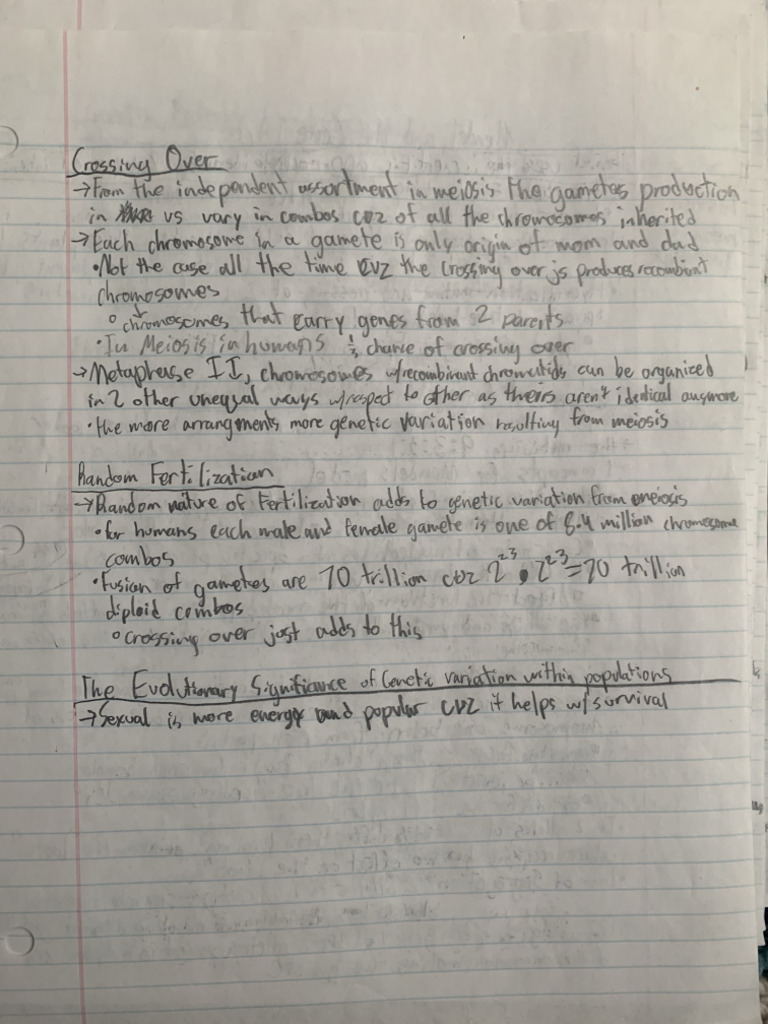 Crossing Over
→From the independent assortment in meiosis the gametes production
in vs vary in combos cuz of all the chromosomes inherited
→Each chromosome in a gamete is only origin of mom and dad
•Not the case all the time cuz the crossing over js produces recombint
chromosomes
○ chromosomes that carry genes from 2 parents
•In Meiosis in humans chance of crossing over
→Metaphease II, chromosomes w/recombinant chromatids can be organized
in 2 other unequal ways w/respect to other as theirs aren't identical anymore
•the more arrangments more genetic variation resulting from meiosis
Random Fertilization
→Random nature of Fertilization adds to genetic variation from meiosis
•for humans each male and female gamete is one of 8.4 million chromosome
combos
•Fusion of gametes are 70 trillion cuz 2²³•2²³=70 trillion
diploid combos
○ crossing over just adds to this
The Evolutionary Significance of Genetic variation within populations
→Sexual is more energy and popular cuz it helps w/survival